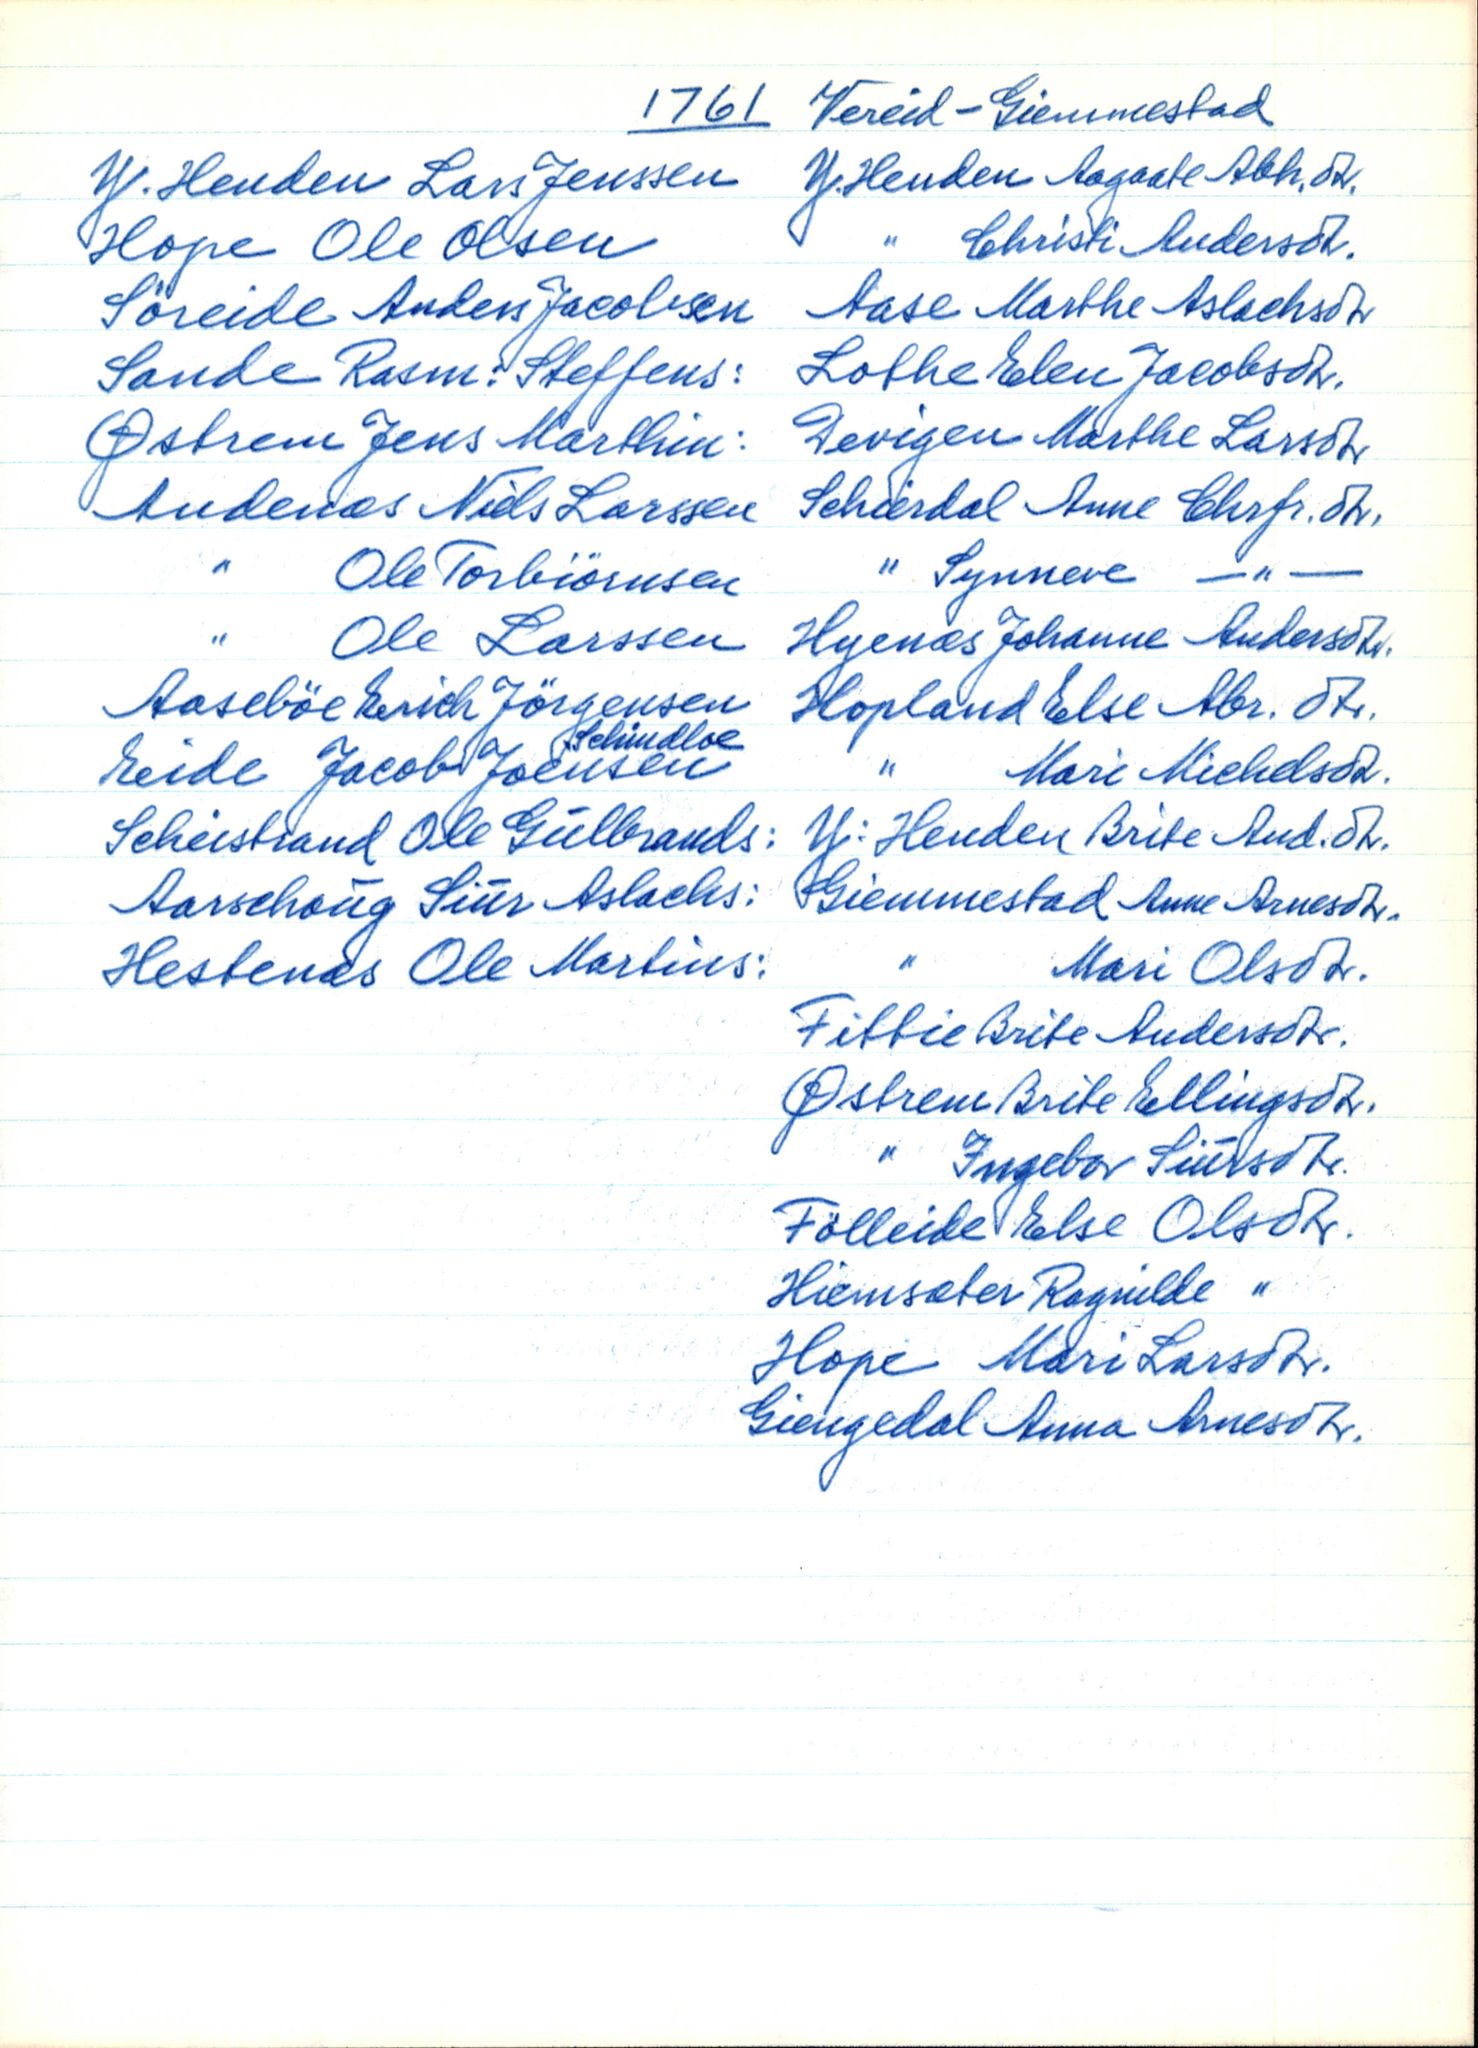 1761 Vereid - Giemmestad
Y. Henden Lars Jenssen
Hope Ole Olsen
Söreide Anders Jacobsen
Sande Rasm: Steffens:
Østrem Jens Marthin:
Andenæs Niels Larssen
" Ole Torbiörnsen
" Ole Larssen
Aaseböe Erich Jörgensen
Schindloe
Eide Jacob Joensen
Scheistrand Ole Gülbrands:
Aarschoüg Siür Aslachs:
Hestenæs Ole Martins:
Y. Henden Aagaate Abh. dtr.
" Christi Andersdtr.
Aase Marthe Aslachsdtr
Lothe Elen Jacobsdtr.
Devigen Marthe Larsdtr
Scheerdal Anne Chrfr. dtr.
" Synneve —"—
Hyenæs Johanne Andersdtr.
Hopland Else Abr. dtr.
" Mari Michelsdtr.
Y: Henden Brite And. dtr.
Giemmestad Anne Arnesdtr.
" Mari Olsdtr.
Fittie Brite Andersdtr.
Østrem Brite Ellingsdtr.
" Ingebor Siürsdtr.
Fölleide Else Olsdtr.
Hiemsæter Ragnilde "
Hope Mari Larsdtr.
Giengedal Anna Arnesdtr.